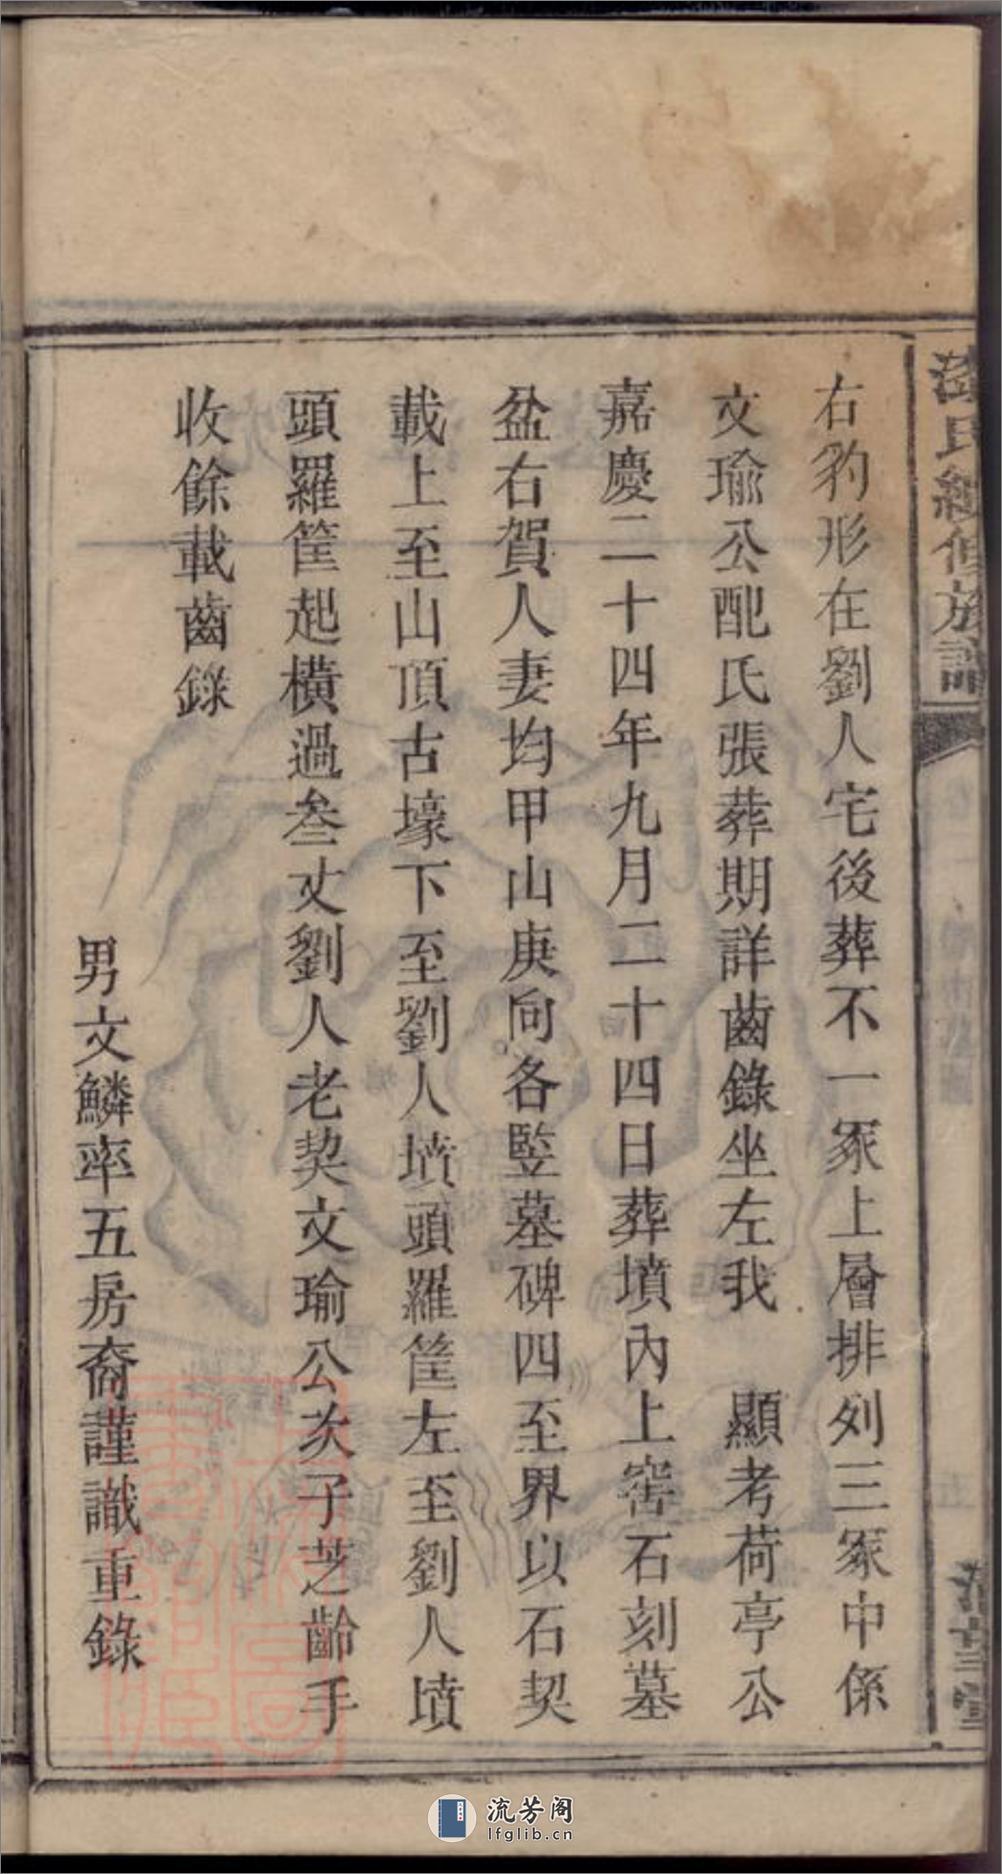 氏續修族譜
右豹形在劉人宅後葬不一冢上層排列三冢中係
文瑜公配氏張葬期詳齒錄坐左我　顯考荷亭公
嘉慶二十四年九月二十四日葬墳內上窖石刻墓
盆右賀人妻均甲山庚向各竪墓碑四至界以石契
載上至山頂古壕下至劉人墳頭羅筐左至劉人墳
頭羅筐起橫過叁丈劉人老契文瑜公次子芝齡手
收餘載齒錄
男文鱗率五房裔謹識重錄
流芳阁
lfglib.cn